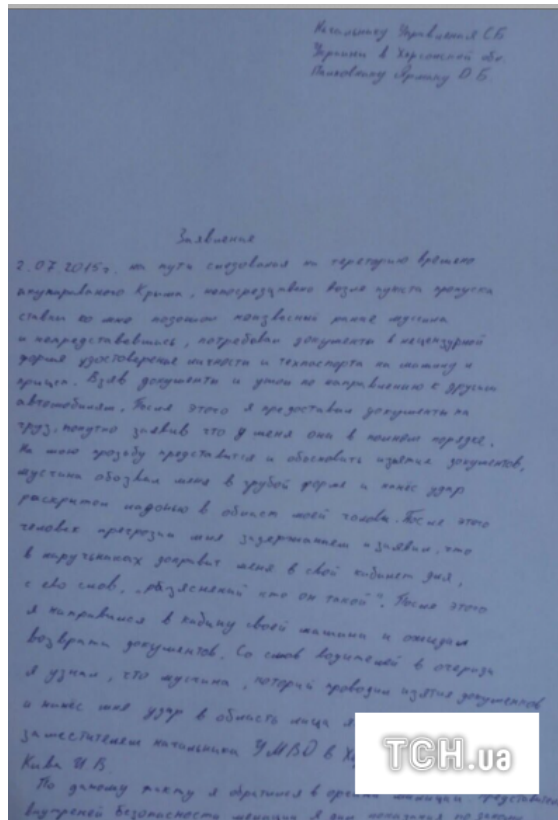 Начальнику Управления СБ
Украины в Херсонской обл.
Полковнику Д.Б.
Заявление
2.07.2015г. на пути следования на територию времено
окупированого Крыма, непосредствено возле пункта пропуска
ко мне подошол неизвесный ранее мусчина
и непредставившись, потребовал документы в нецензурной
форме удостоверение личности и техпаспорта на машину и
прицеп. Взяв документы и ушол по направлению к другим
автомобилям. После этого я предоставил документы на
груз, попутно заявив что у меня они в полном порядке.
На мою прозьбу представится и обосновать изятие документов,
мусчина обозвал меня в грубой форме и нанёс удар
раскритой ладонью в област моей головы. После этого
человек пригрозил мне задержанием и заявил, что
в наручьниках доставит меня в свой кабинет для,
с ево слов, „обяснений кто он такой". После этого
я направился в кабину своей машини и ожидал
возврата документов. Со слов водителей в очереди
я узнал, что мусчина, который проводил изятие документов
и нанёс мне удар в область лица я
заместителем начальника УМВД в
Кива И.В.
По даному факту я обратился в органи милиции
внутреней безопасности милиции
ТСН.ua